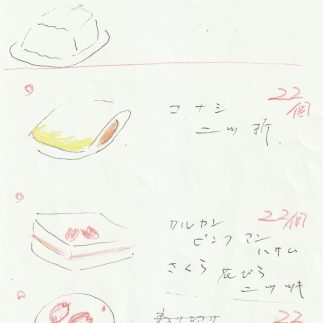 コナシ
二ツ折
22個
ワルカン
ピンクアン
ハサム
さくら 花びら
二ツ
22個
22